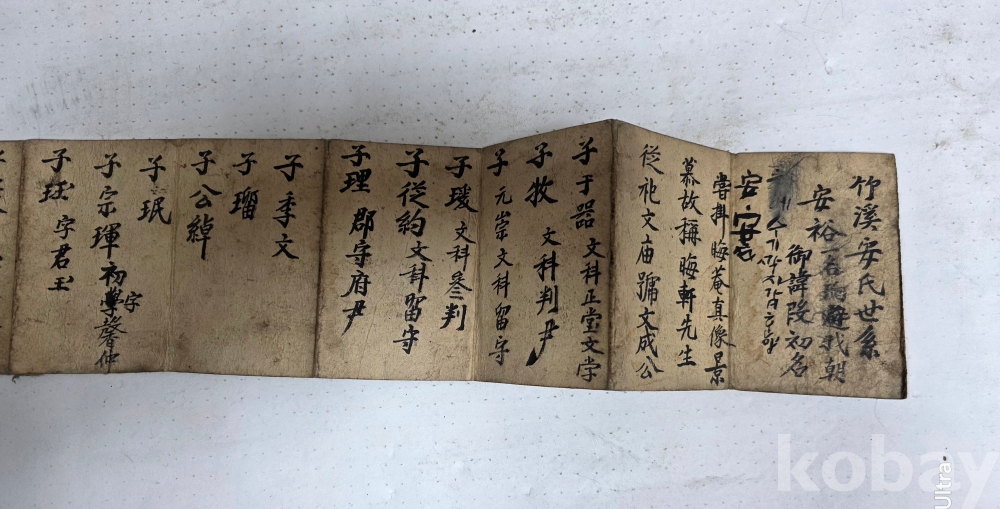 竹溪安氏世系
安裕 一名珦避我朝
御諱改初名
安 安
嘗掛晦菴真像景
慕故稱晦軒先生
從祀文庙號文成公
子于器 文科正堂文学
子牧 文科判尹
子元崇文科留守
子瑗文科叅判
子從約文科留守
子理 郡守府尹
子季文
子瑠
子公綽
子珉
子宗琿初字馨仲
子 字君玉
kobay
Ultra